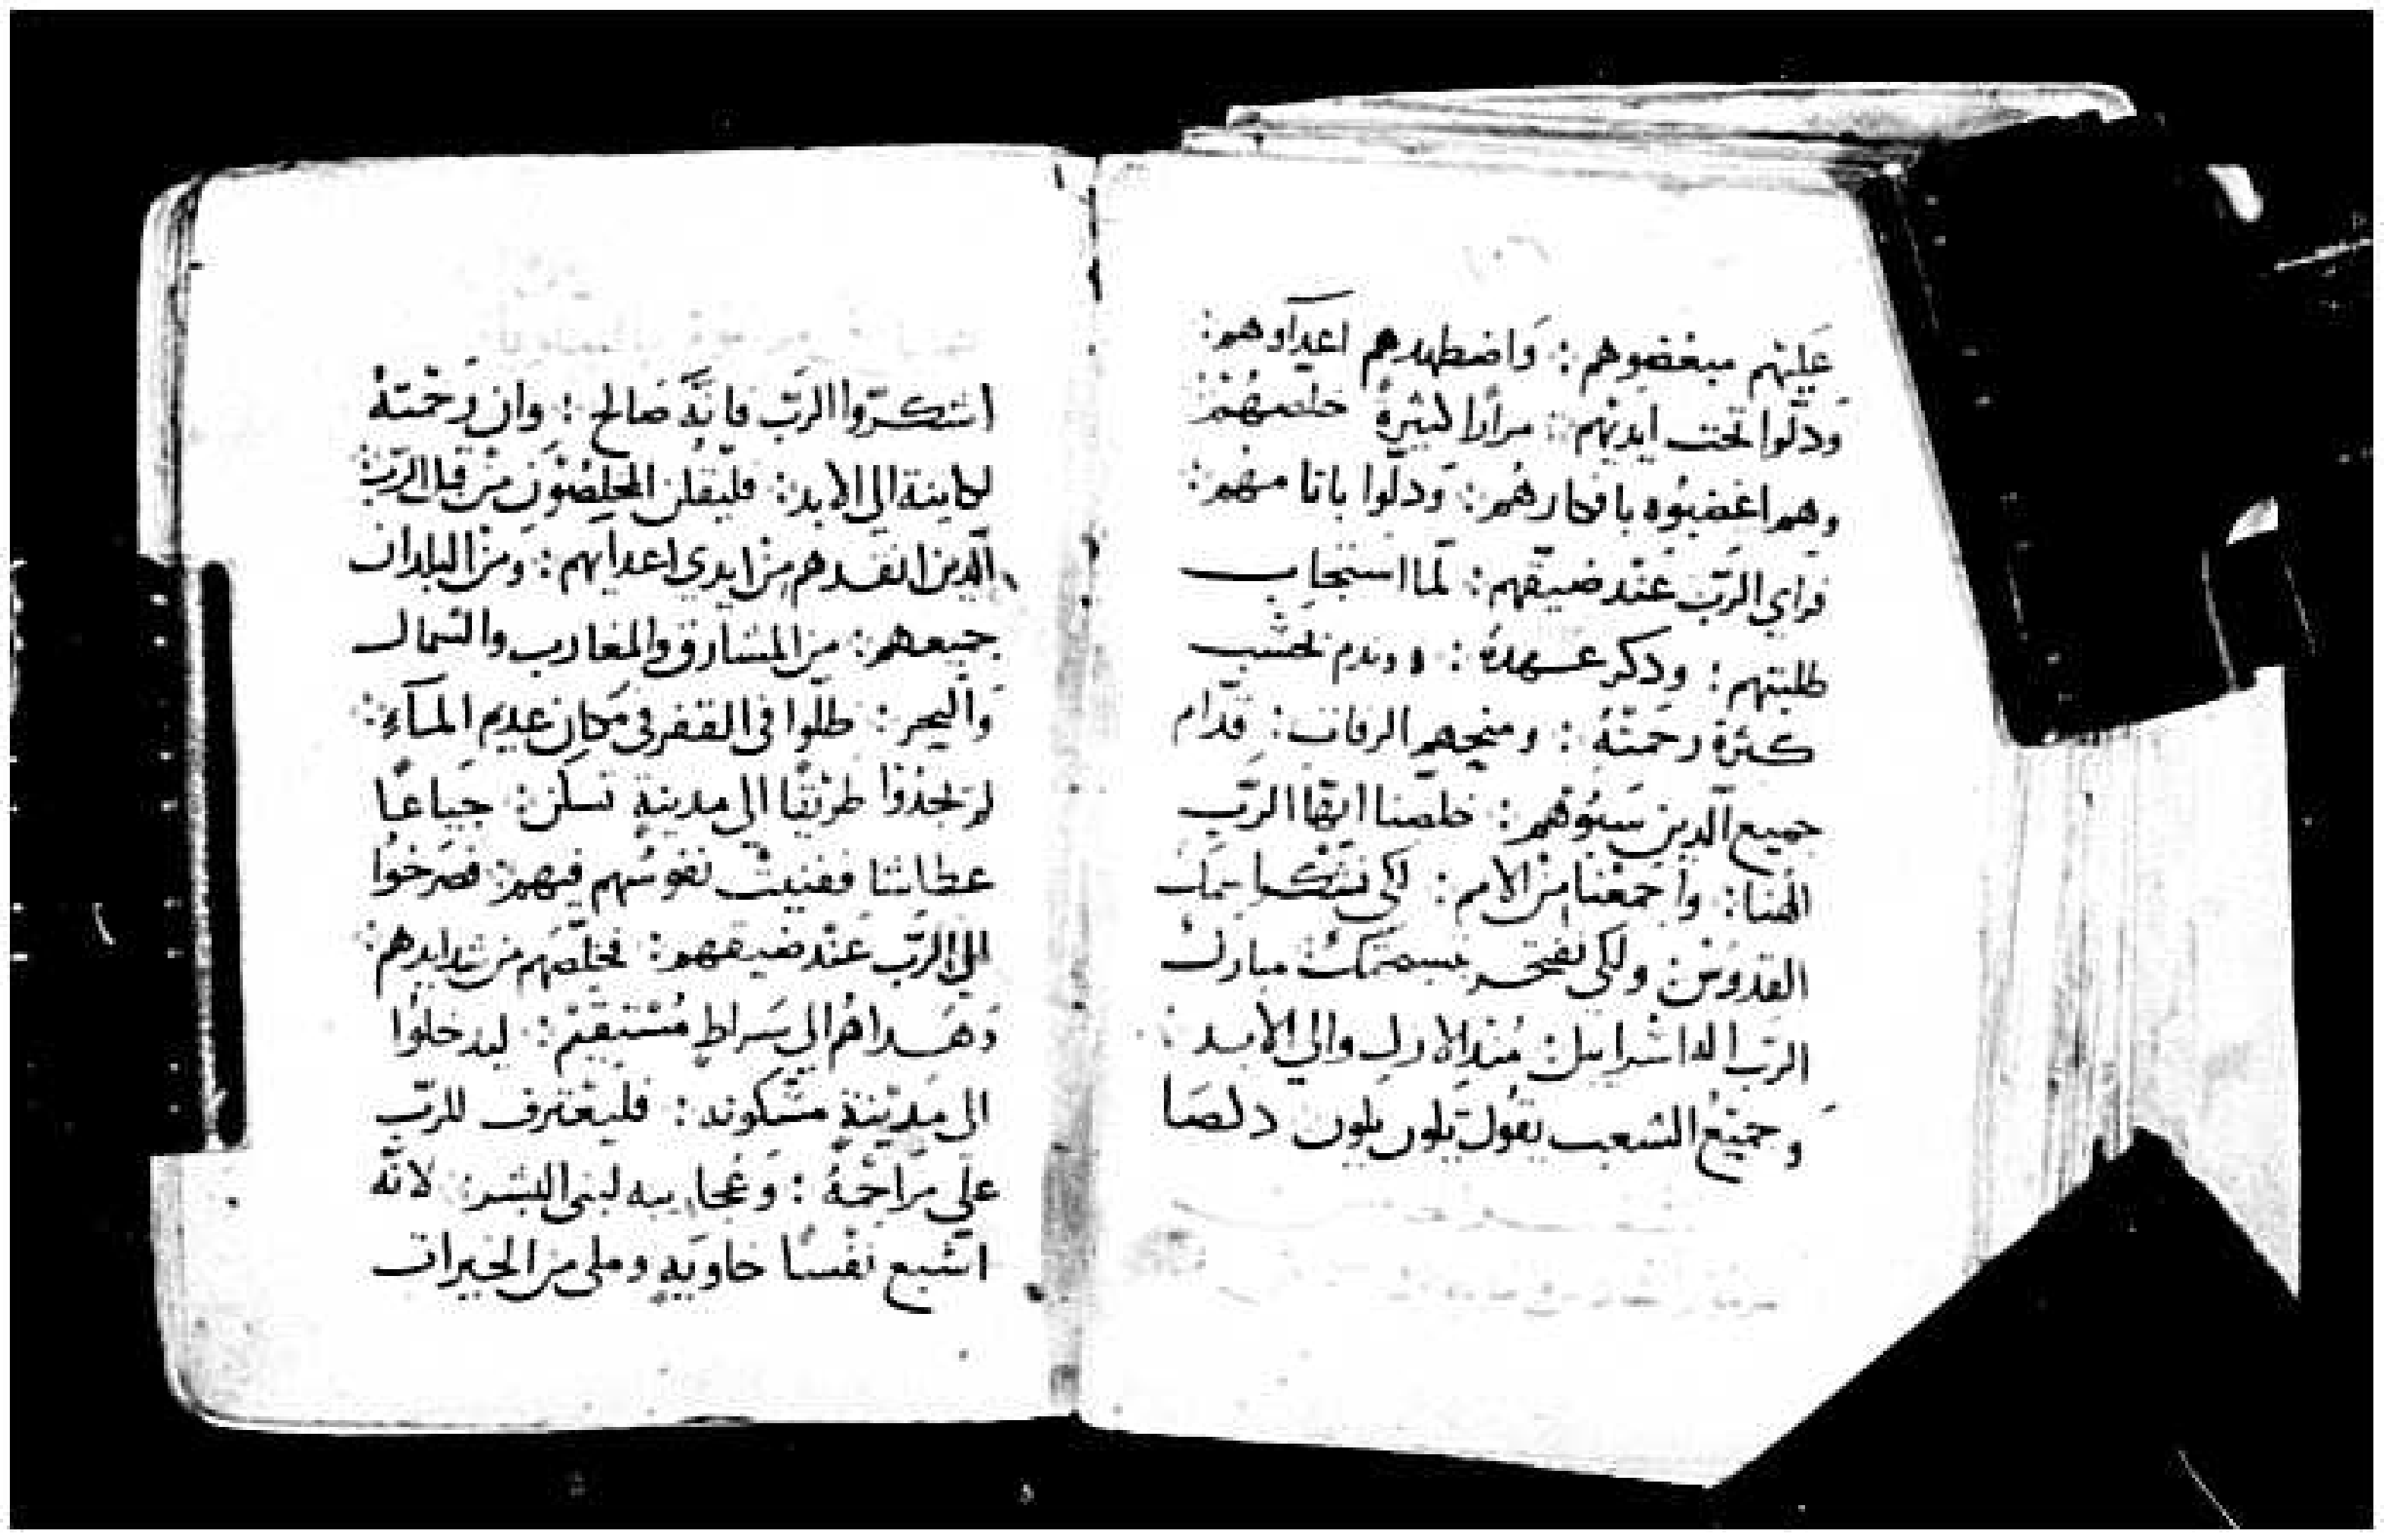 عَليْهم مبغضوهم: وَاضطهدهم اعدآوهم:
وَذلّوا تحت ايديْهم: مرارًا كثيرةً خلصهُمْ:
وهم اغضبُوه بافكارهُم: وَذلّوا باثامهُم:
فراي الرَّبّ عَنْد ضيقهم: لمّا استجاب
طلبتهم: وذكر عهدهُ: وندم بحسب
كثرة رحَمتهُ: ومنحهم الرفات: قدّام
جميع الّذين سَبُوْهم: خلصنا ايّها الرّب
الهنا: وَاجمَعْنا مِنْ الامم: لكي نشْكر اسمك
القدوسْ: ولكي نفتخر بتسبحتك مبارك
الرّب اله اسْرايل: مُنْذ الازل والي الأبد:
وجميْعُ الشعب يقُول يكون يكون
اشكرّوا الرَبّ فانَّه صَالح: وان رَحْمتهُ
كاينة الي الابد: فليقلن المخلصُوْنَ منْ قبل الرّبّ
الّذين انقدهم منْ ايدي اعدآيهم: ومنْ البلدان
جمعهم: من المشارق والمغارب والشمال
وَاليحر: ظلّوا في القفر في مَكان عديم المآء:
لم يجدُوْا طرِيْقًا الي مدينةٍ تسكن: جيَاعًا
عطاشا ففنيتْ نفوسُهم فيهم: فصَرخوُا
الي الرَّب عَنْد ضيقهم: فخلّصَهم من شدايدهم:
وَهَداهُم الي سَراطٍ مُسْتقيْم: ليدخلوُا
الي مَديْنةٍ مسْكونه: فليعْترف للرّب
علي مَرَاحِمهُ: وَعُجايبه لبني البشر: لانّه
اشبع نفْسًا خاويَةٍ وملي من الخيرات